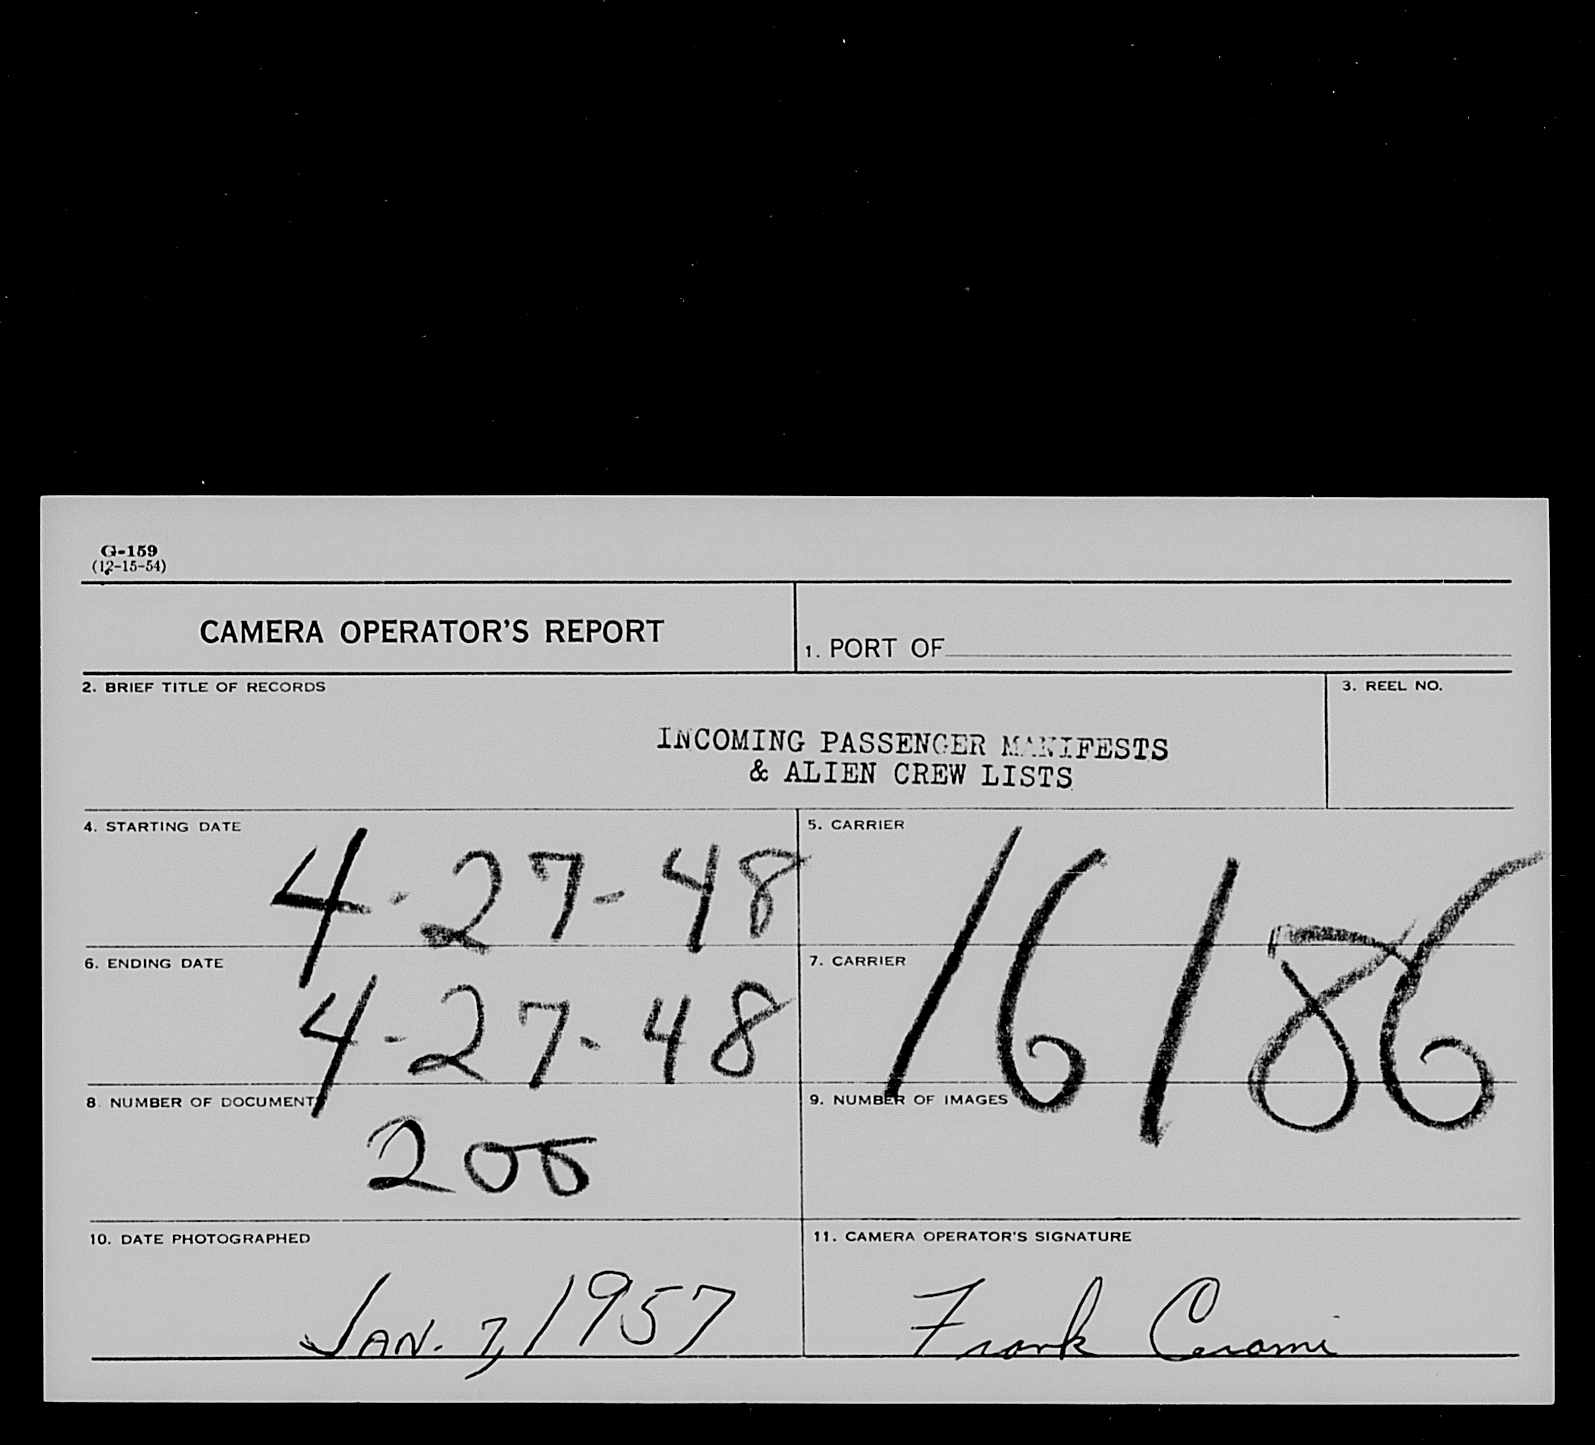 G-159
(12-15-54)
CAMERA OPERATOR'S REPORT
1. PORT OF
2. BRIEF TITLE OF RECORDS
3. REEL NO.
INCOMING PASSENGER MANIFESTS
& ALIEN CREW LISTS
4. STARTING DATE
4-27-48
5. CARRIER
16186
6. ENDING DATE
4-27-48
7. CARRIER
8. NUMBER OF DOCUMENTS
200
9. NUMBER OF IMAGES
10. DATE PHOTOGRAPHED
Jan. 7, 1957
11. CAMERA OPERATOR'S SIGNATURE
Frank Cerami